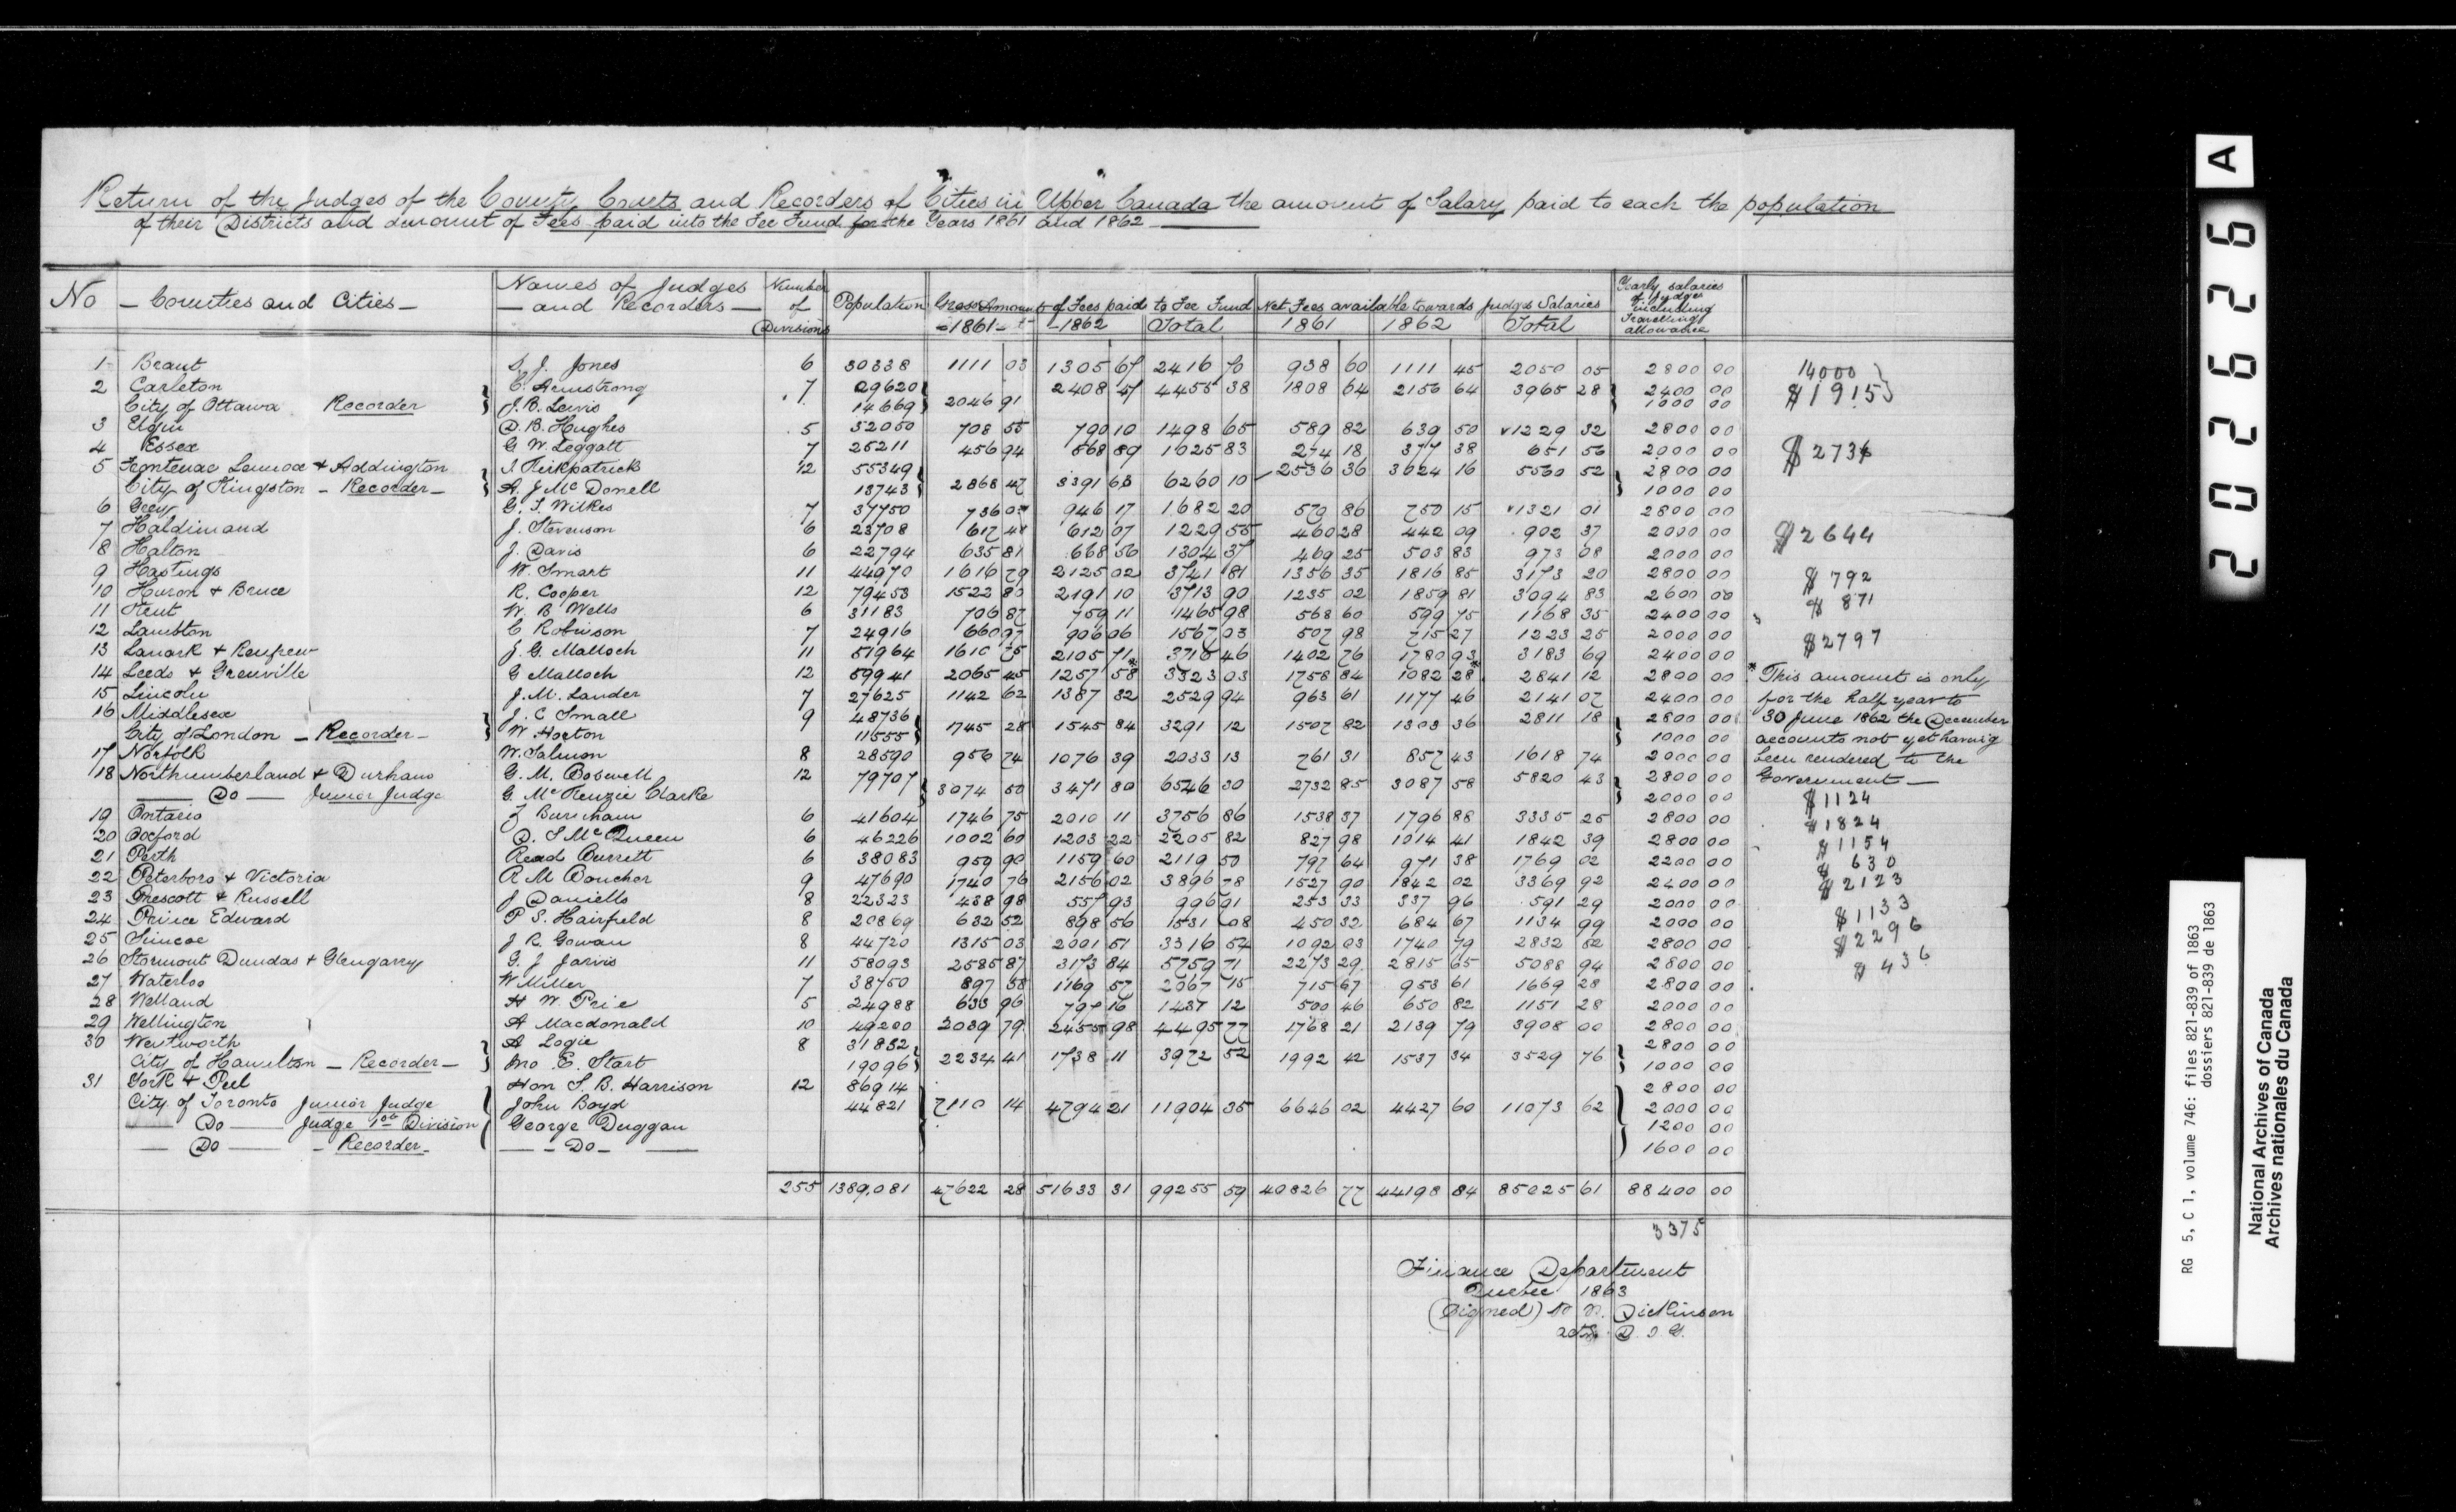 Return of the Judges of the County Courts and Recorders of Cities in Upper Canada the amount of Salary paid to each the population
of their Districts and amount of Fees paid into the Fee Fund for the Years 1861 and 1862
No Counties and Cities Names of Judges and Recorders Number of Divisions Population Gross Amount of Fees paid to Fee Fund Net Fees available towards Judges Salaries Yearly salaries of Judges including Travelling allowance
1861 1862 Total 1861 1862 Total
1 Brant S. J. Jones 6 30338 1111 03 1305 67 2416 70 938 60 1111 45 2050 05 2800 00 14000
2 Carleton C. Armstrong 7 29620 2046 91 2408 47 4455 38 1808 64 2156 64 3965 28 2400 00 $1915
City of Ottawa Recorder J. B. Lewis 14669 1000 00
3 Elgin D. B. Hughes 5 32050 708 55 790 10 1498 65 589 82 639 50 1229 32 2800 00
4 Essex G W Leggatt 7 25211 456 94 568 89 1025 83 274 18 377 38 651 56 2000 00 $2736
5 Frontenac Lennox & Addington Kirkpatrick 12 55349 2868 47 3391 63 6260 10 2536 36 3024 16 5560 52 2800 00
City of Kingston - Recorder - A. J. McDonell 13743 1000 00
6 Grey G. S. Wilkes 7 37750 736 03 946 17 1682 20 570 86 750 15 1321 01 2800 00
7 Haldimand J. Stevenson 6 23708 617 48 612 07 1229 55 460 28 442 09 902 37 2000 00 $2644
8 Halton J. Davis 6 22794 635 81 668 56 1304 37 469 25 503 83 973 08 2000 00
9 Hastings W. Smart 11 44970 1616 79 2125 02 3741 81 1356 35 1816 85 3173 20 2800 00 $792
10 Huron & Bruce R. Cooper 12 79453 1522 80 2191 10 3713 90 1235 02 1859 81 3094 83 2600 00 $871
11 Kent W. B Wells 6 31183 706 87 759 11 1465 98 568 60 599 75 1168 35 2400 00
12 Lambton C Robinson 7 24916 660 97 906 06 1567 03 507 98 715 27 1223 25 2000 00 $2797
13 Lanark & Renfrew J. G. Malloch 11 51964 1610 75 2105 71 3716 46 1402 76 1780 93 3183 69 2400 00
14 Leeds & Grenville G Malloch 12 59941 2065 45 1257 58* 3323 03 1758 84 1082 28* 2841 12 2800 00 * This amount is only
15 Lincoln J. M. Lauder 7 27625 1142 62 1387 32 2529 94 963 61 1177 46 2141 07 2400 00 for the half year to
16 Middlesex J. C Small 9 48736 1745 28 1545 84 3291 12 1507 82 1303 36 2811 18 2800 00 30 June 1862 the December
City of London - Recorder - W Horton 11555 1000 00 accounts not yet having
17 Norfolk W. Salmon 8 28590 956 74 1076 39 2033 13 761 31 857 43 1618 74 2000 00 been rendered to the
18 Northumberland & Durham G. M. Boswell 12 79707 3074 50 3471 80 6546 30 2732 85 3087 58 5820 43 2800 00 Government
Do Junior Judge G. McKenzie Clarke 2000 00 $1124
19 Ontario Z Burnham 6 41604 1746 75 2010 11 3756 86 1538 37 1796 88 3335 25 2800 00 $1824
20 Oxford D. S McQueen 6 46226 1002 60 1203 22 2205 82 827 98 1014 41 1842 39 2800 00 $1154
21 Perth Read Burrett 6 38083 959 90 1159 60 2119 50 797 64 971 38 1769 02 2200 00 $630
22 Peterboro & Victoria R M Boucher 9 47690 1740 76 2156 02 3896 78 1527 90 1842 02 3369 92 2400 00 $2123
23 Prescott & Russell J Daniells 8 22323 438 98 557 93 996 91 253 33 337 96 591 29 2000 00
24 Prince Edward P S. Hairfield 8 20869 632 52 898 56 1531 08 450 32 684 67 1134 99 2000 00 $1133
25 Simcoe J R. Gowan 8 44720 1315 03 2001 51 3316 54 1092 03 1740 79 2832 82 2800 00 $2296
26 Stormont Dundas & Glengarry G. J Jarvis 11 58093 2585 87 3173 84 5759 71 2273 29 2815 65 5088 94 2800 00 $436
27 Waterloo W Miller 7 38750 897 58 1169 57 2067 15 715 67 953 61 1669 28 2800 00
28 Welland H W. Price 5 24988 639 96 797 16 1437 12 500 46 650 82 1151 28 2000 00
29 Wellington A Macdonald 10 49200 2039 79 2455 98 4495 77 1768 21 2139 79 3908 00 2800 00
30 Wentworth A Logie 8 31832 2234 41 1738 11 3972 52 1992 42 1537 34 3529 76 2800 00
City of Hamilton - Recorder - Jno E. Start 19096 1000 00
31 York & Peel Hon S. B. Harrison 12 86914 2800 00
City of Toronto Junior Judge John Boyd 44821 7110 14 4794 21 11904 35 6646 02 4427 60 11073 62 2000 00
Do Judge 1st Division George Duggan 1200 00
Do - Recorder - Do 1600 00
255 1389,081 47622 28 51633 31 99255 59 40826 77 44198 84 85025 61 88400 00
3375
Finance Department
Quebec 1863
(Signed) Dickinson
actg. D. I. G.
A
202626
RG 5, C 1, volume 746: files 821-839 of 1863
dossiers 821-839 de 1863
National Archives of Canada
Archives nationales du Canada